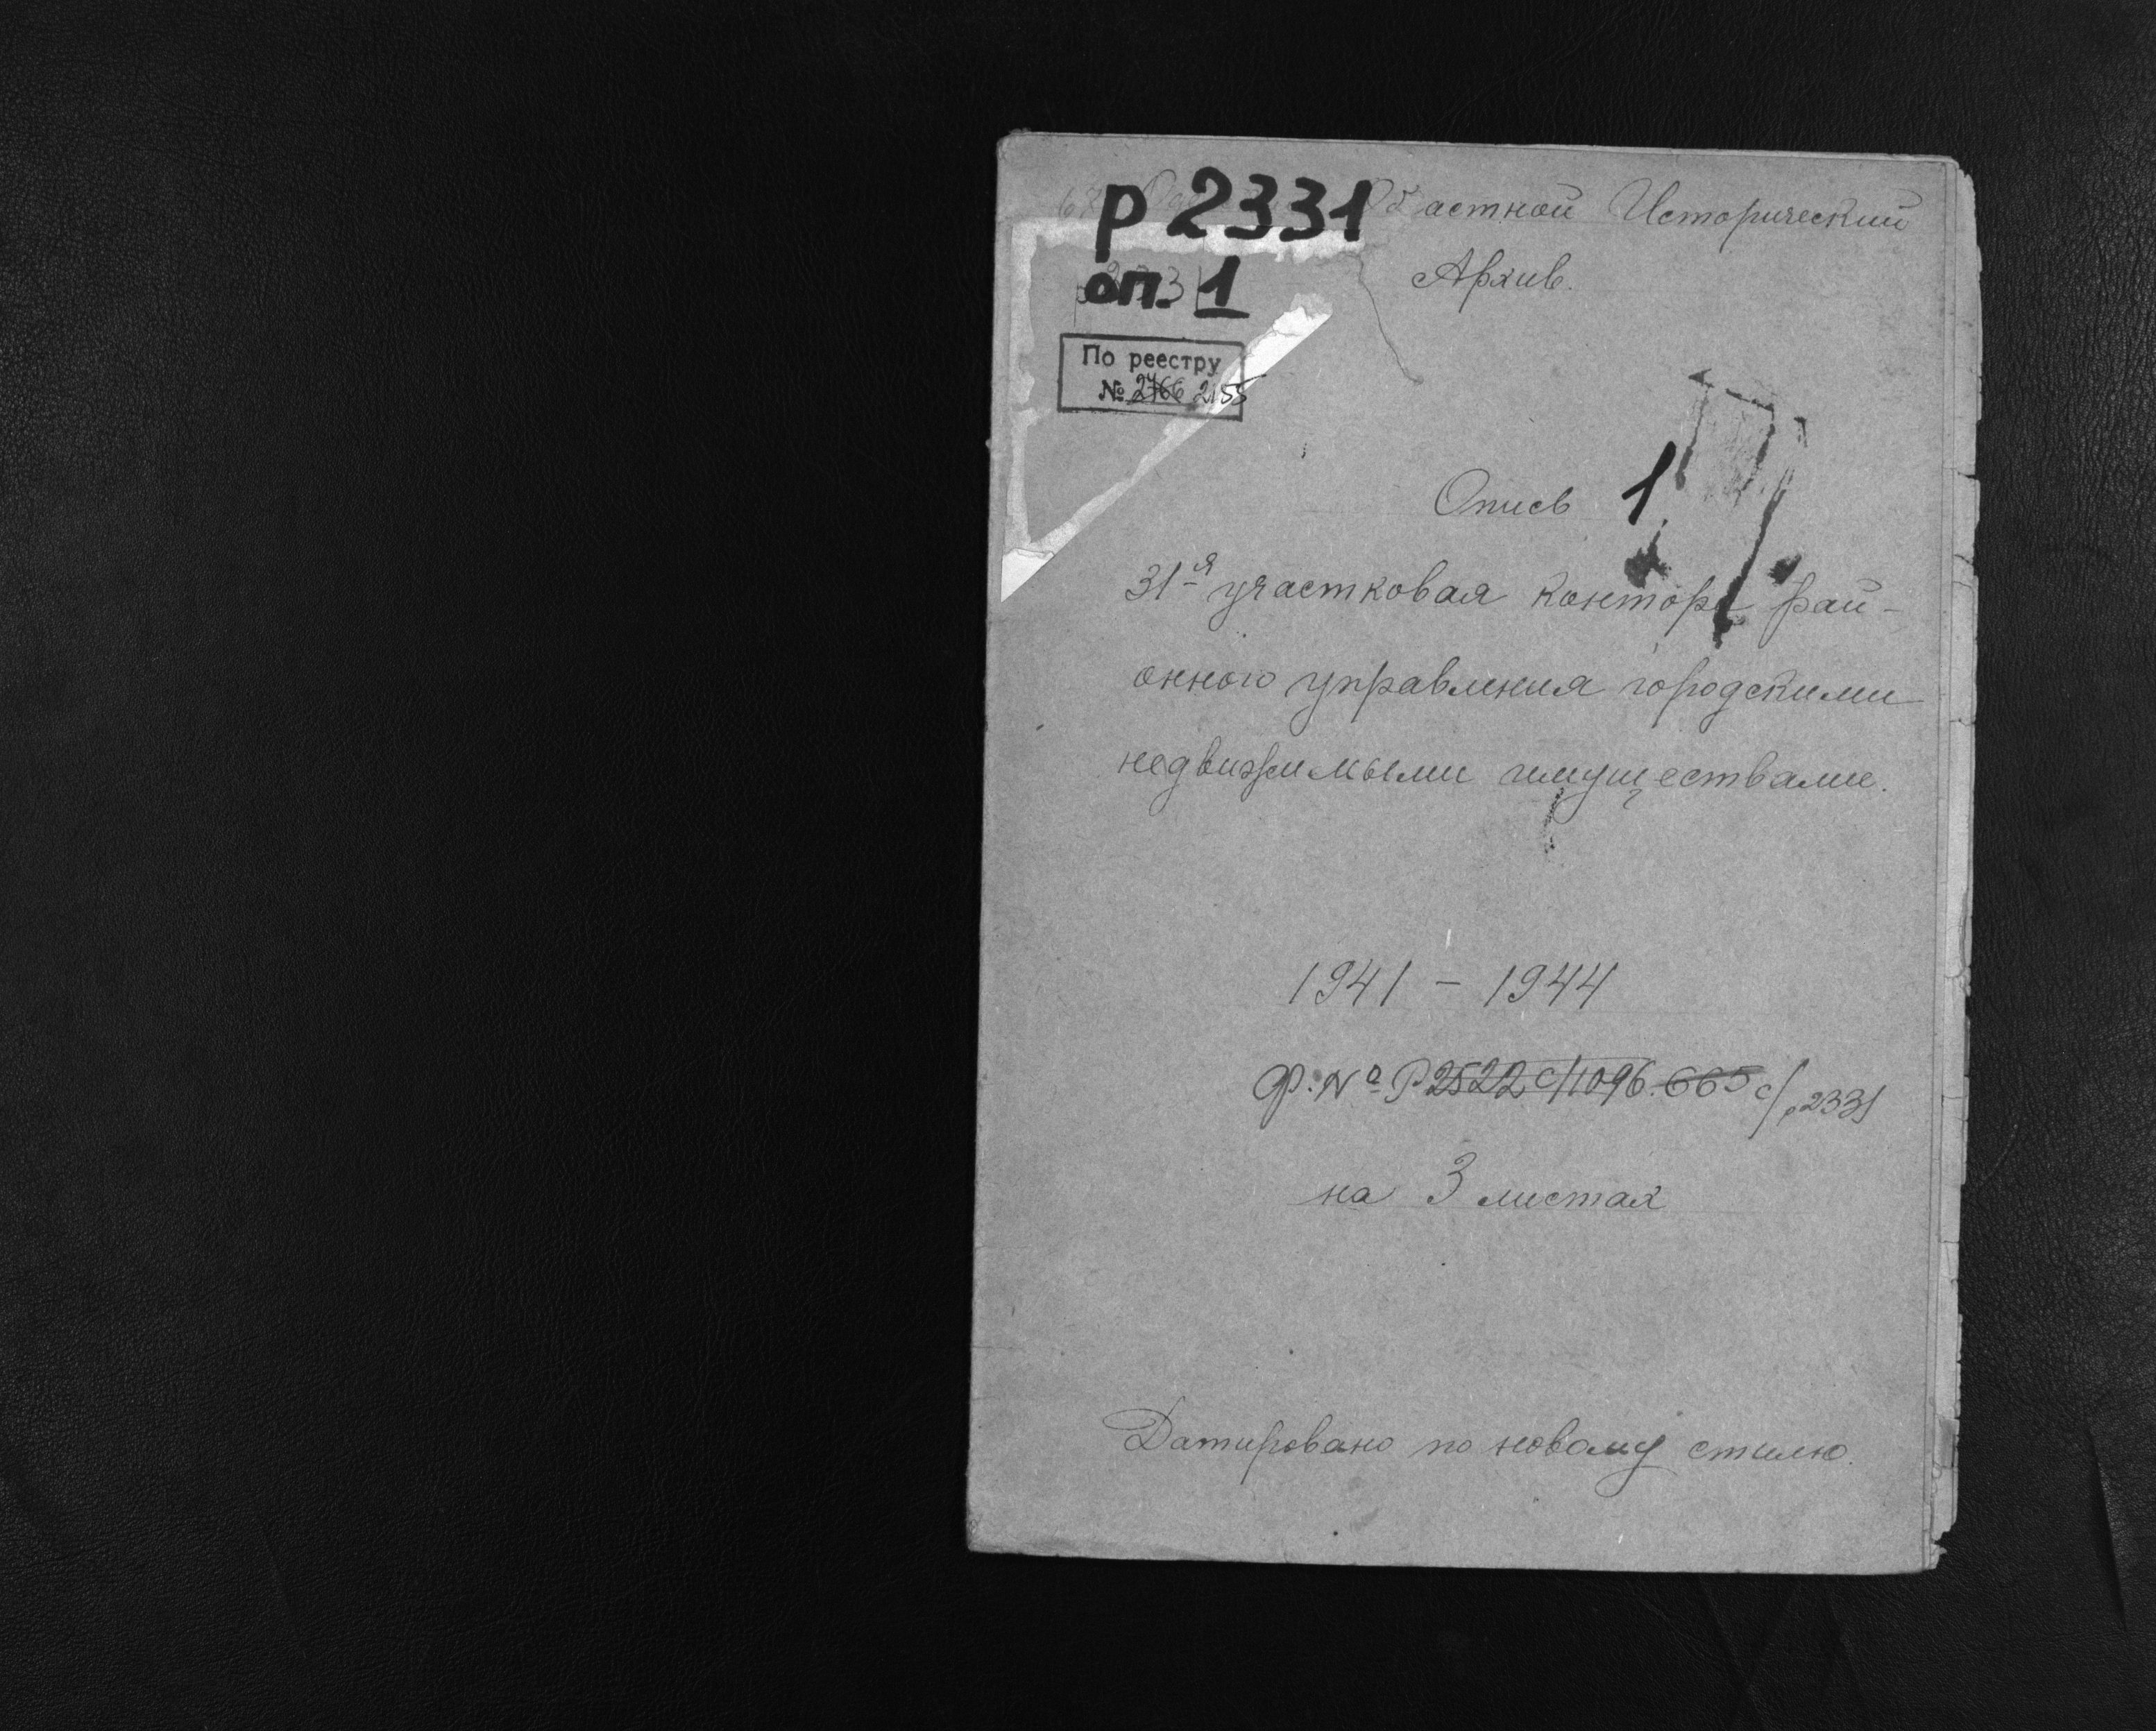 р 2331
Областной Исторический
Архив.
оп. 1
По реестру
№ 2766 2155
Опись 1
31-я участковая контора рай-
онного управления городскими
недвижимыми имуществами.
1941 - 1944
Ф. № Р 2522 с/1096. 665 с/р2331
на 3 листах
Датировано по новому стилю.